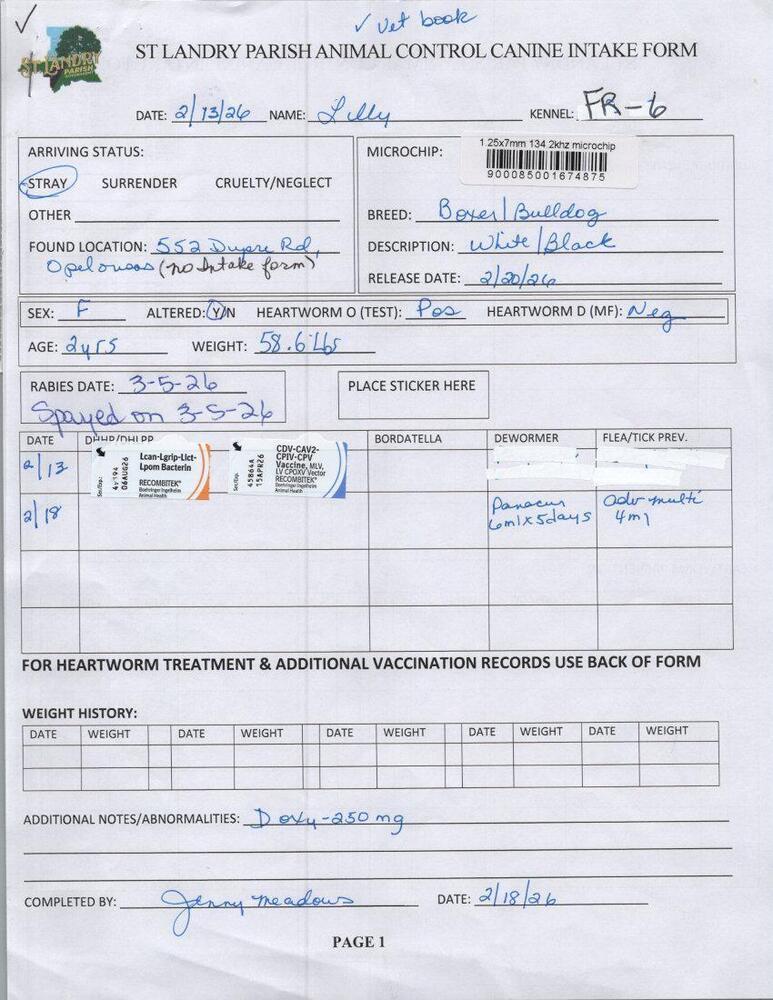 ✓ vet book
ST LANDRY PARISH
ST LANDRY PARISH ANIMAL CONTROL CANINE INTAKE FORM
DATE: 2/13/26 NAME: Lilly KENNEL: FR-6
ARRIVING STATUS:
STRAY SURRENDER CRUELTY/NEGLECT
OTHER
FOUND LOCATION: 552 Dupre Rd,
Opelousas (no Intake form)
MICROCHIP:
1.25x7mm 134.2khz microchip
900085001674875
BREED: Boxer/Bulldog
DESCRIPTION: White/Black
RELEASE DATE: 2/20/26
SEX: F ALTERED: Y/N HEARTWORM O (TEST): Pos HEARTWORM D (MF): Neg
AGE: 2yrs WEIGHT: 58.6 Lbs
RABIES DATE: 3-5-26
Spayed on 3-5-26
PLACE STICKER HERE
DATE DHHP/DHLPP BORDATELLA DEWORMER FLEA/TICK PREV.
2/13
Lcan-Lgrip-Lict-
Lpom Bacterin
RECOMBITEK
Boehringer Ingelheim
Animal Health
06AUG26
CDV-CAV2-
CPIV-CPV
Vaccine, MLV,
LV CPOXV Vector
RECOMBITEK
Boehringer Ingelheim
Animal Health
45864A
15APR26
2/18 Panacur adv multi
6ml x 5days 4ml
FOR HEARTWORM TREATMENT & ADDITIONAL VACCINATION RECORDS USE BACK OF FORM
WEIGHT HISTORY:
DATE WEIGHT DATE WEIGHT DATE WEIGHT DATE WEIGHT DATE WEIGHT
ADDITIONAL NOTES/ABNORMALITIES: Doxy-250 mg
COMPLETED BY: Jenny Meadows DATE: 2/18/26
PAGE 1